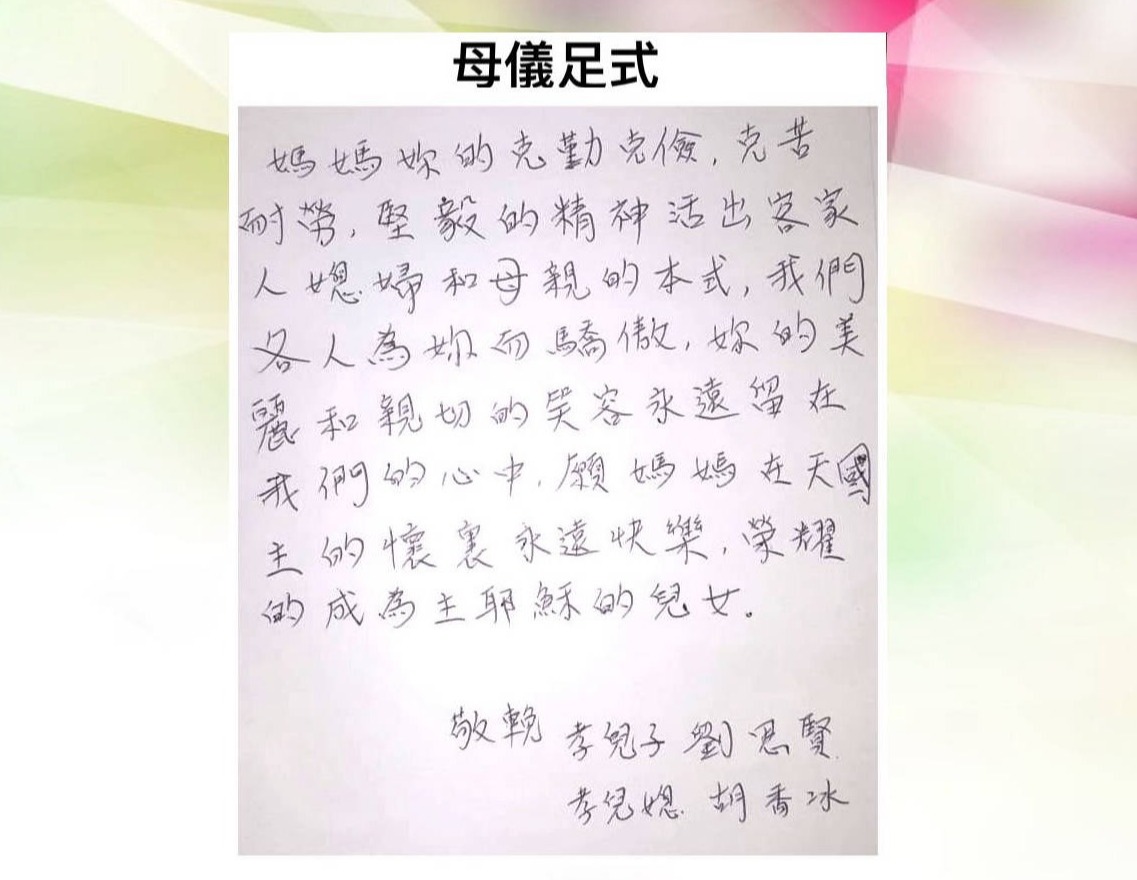 母儀足式
媽媽妳的克勤克儉,克苦
耐勞,堅毅的精神活出客家
人媳婦和母親的本式,我們
各人為妳而驕傲,妳的美
麗和親切的笑容永遠留在
我們的心中,願媽媽在天國
主的懷裏永遠快樂,榮耀
的成為主耶穌的兒女。
敬輓 孝兒子 劉思賢
孝兒媳 胡香冰